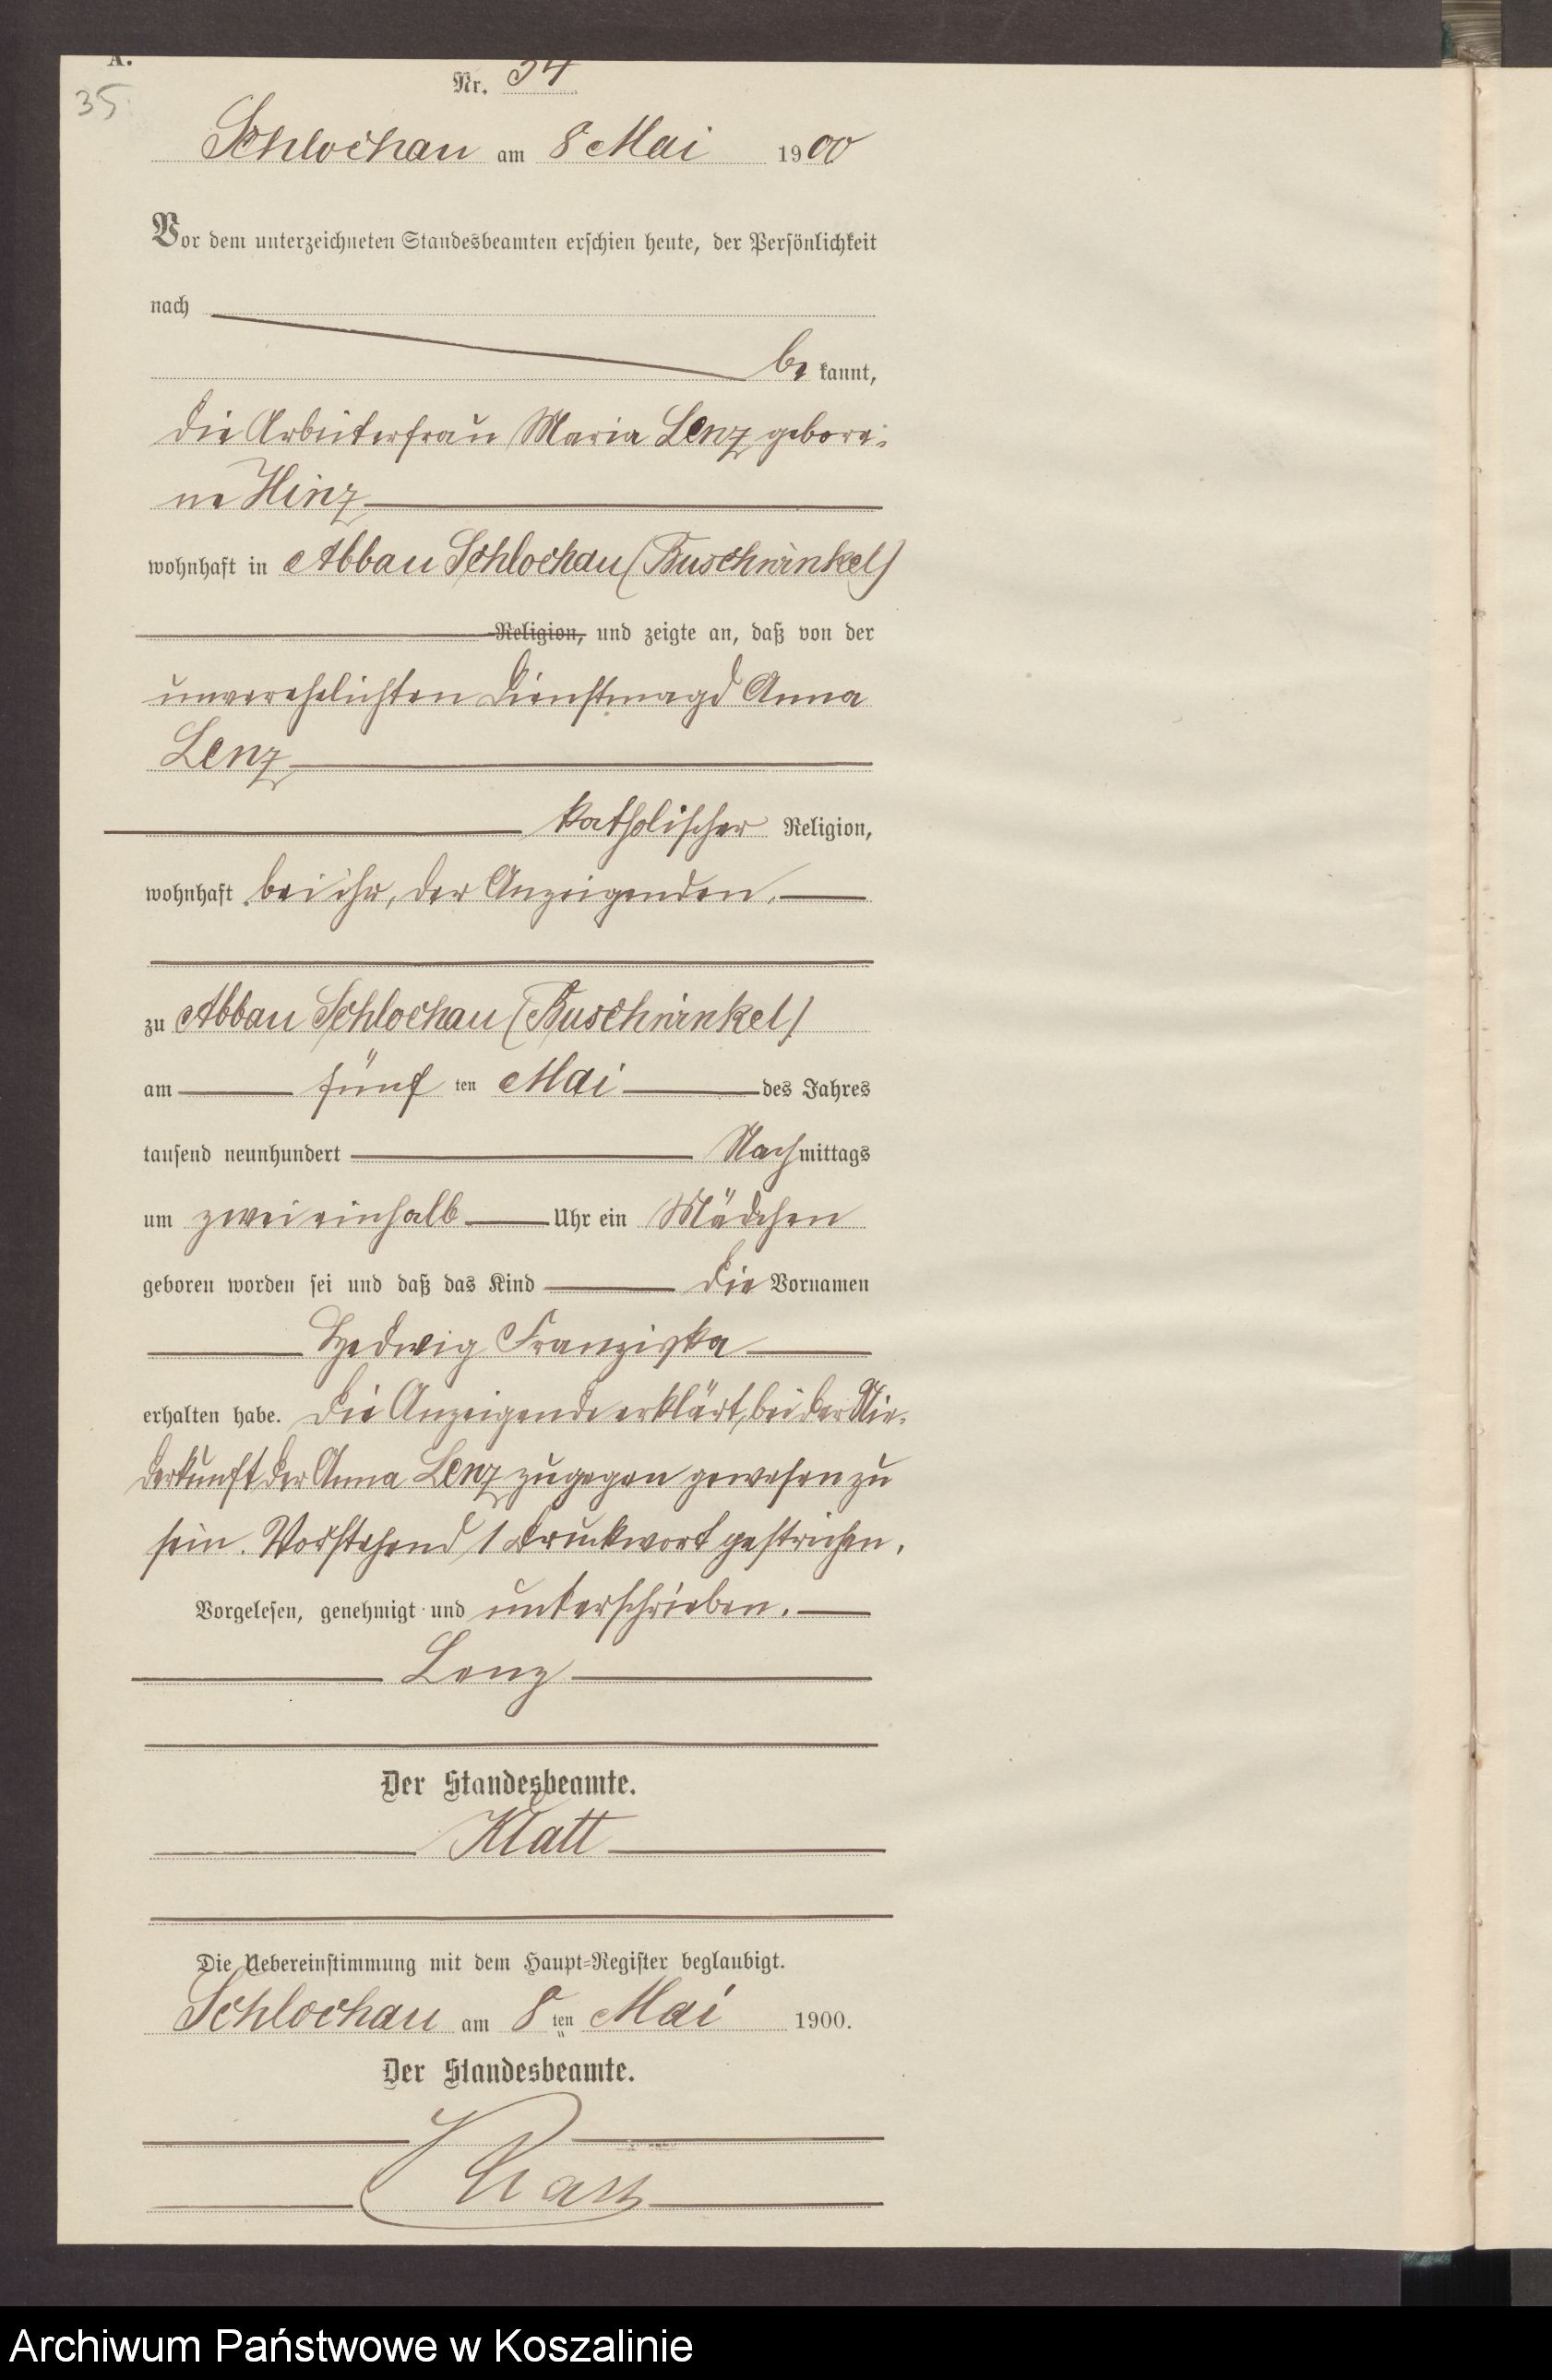 A.
35
Nr. 34
Schlochau am 8 Mai 1900
Vor dem unterzeichneten Standesbeamten erschien heute, der Persönlichkeit
nach
be kannt,
die Arbeiterfrau Maria Lenz gebore-
ne Hinz
wohnhaft in Abbau Schlochau (Buschwinkel)
Religion, und zeigte an, daß von der
unverehelichten Dienstmagd Anna
Lenz
katholischer Religion,
wohnhaft bei ihr, der Anzeigenden,
zu Abbau Schlochau (Buschwinkel)
am fünf ten Mai des Jahres
tausend neunhundert Nachmittags
um zwei einhalb Uhr ein Mädchen
geboren worden sei und daß das Kind die Vornamen
Hedwig Franziska
erhalten habe. Die Anzeigende erklärt, bei der Nie-
derkunft der Anna Lenz zugegen gewesen zu
sein. Vorstehend 1 Druckwort gestrichen.
Vorgelesen, genehmigt und unterschrieben.
Lenz
Der Standesbeamte.
Klatt
Die Uebereinstimmung mit dem Haupt-Register beglaubigt.
Schlochau am 8 ten Mai 1900.
Der Standesbeamte.
Klatt
Archiwum Państwowe w Koszalinie